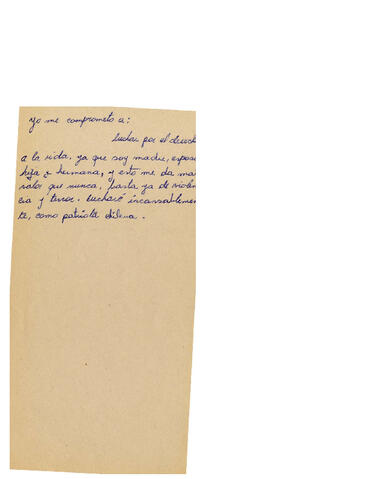 Yo me comprometo a:
luchar por el derech
a la vida, ya que soy madre, espos
hija y hermana, y esto me da mas
valor que nunca, basta ya de violen
cia y terror. Lucharé incansablemen
te, como patriota chilena.